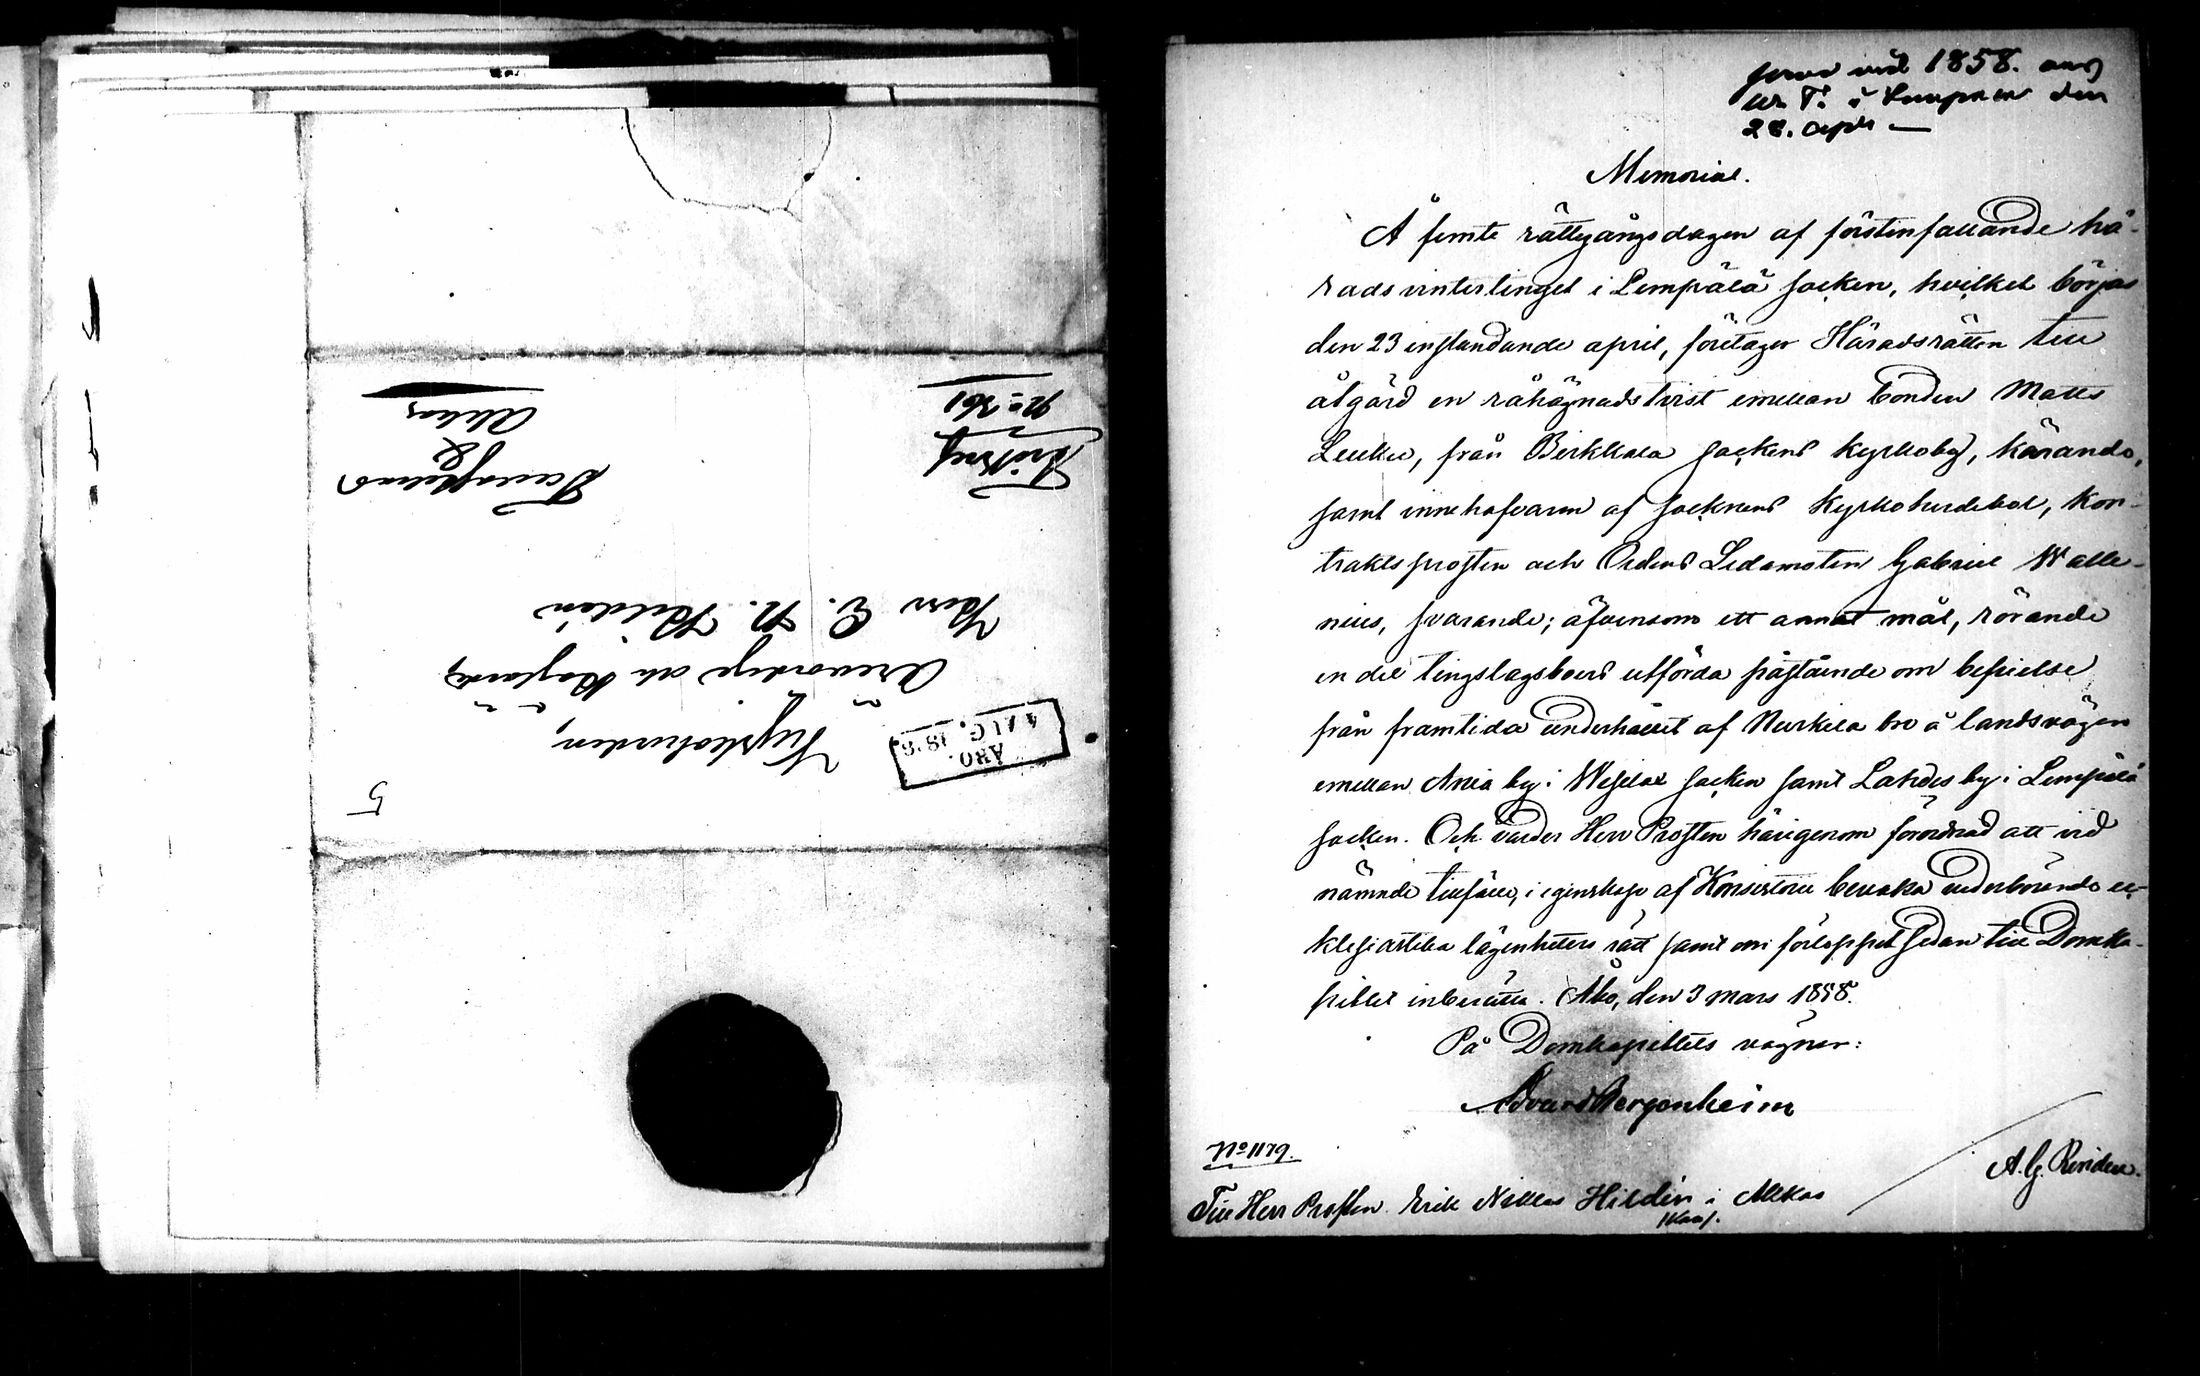 5
ÅBO.
4 AUG. 1858.
Kyrkoherden,
Ärevördige och Höglärde
Herr E. N. Hildén
Fribref
No 361
Tavastehus
&
Akkas
1858.
den
28. April —
Memorial.
Å femte rättegångsdagen af förstinfallande hä-
rads vintertinget i Lempälä socken, hvilket börjas
den 23 instundande april, företager Häradsrätten till
åtgärd en råhägnadstvist emellan bonden Matts
Leuku, från Birkkala sockens kyrkoby, kärande,
samt innehafvaren af socknens kyrkoherdebol, kon-
traktsprosten och Ordens Ledamoten Gabriel Walle-
nius, svarande; äfvensom ett annat mål, rörande
en del tingslagsboers utförda påstående om befrielse
från framtida underhållet af Kurkila bro å landsvägen
emellan Ania by i Wesilax socken samt Lahdes by i Lempälä
socken. Och varder Herr Prosten härigenom förordnad att vid
nämnde tillfälle, i egenskap af Konsistorii bevaka vederbörande ec-
klesiastika lägenheters rätt samt om förloppet sedan till Domka-
pitlet inberätta. Åbo, den 3 mars 1858.
På Domkapitlets vägnar:
Edvard Bergenheim
A. G.
No 1179.
Till Herr Prosten Erik Niklas Hildén i Akkas